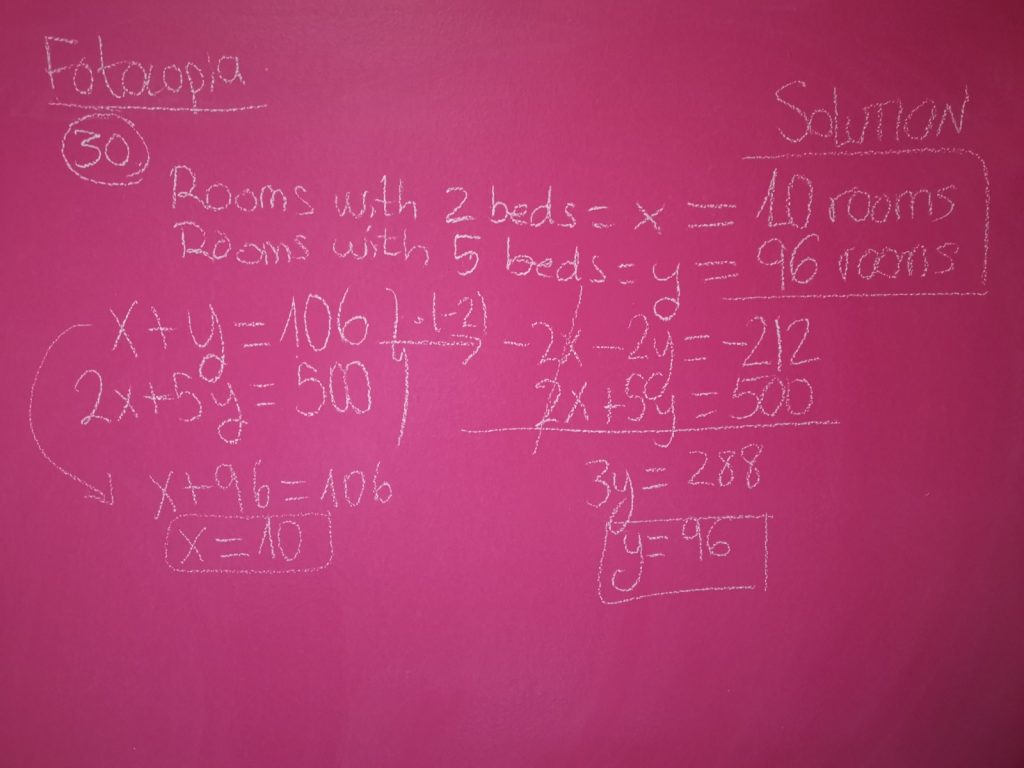 Fotocopia
30
SOLUTION
Rooms with 2 beds = x = 10 rooms
Rooms with 5 beds = y = 96 rooms
x+y=106 } ·(-2) → -2x-2y=-212
2x+5y=500 2x+5y=500
3y=288
x+96=106
y=96
x=10